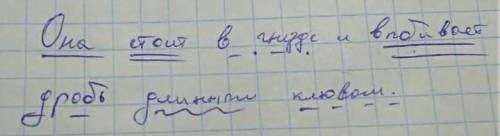 Она стоит в гнезде и впобивает
дробь длинным клювом.